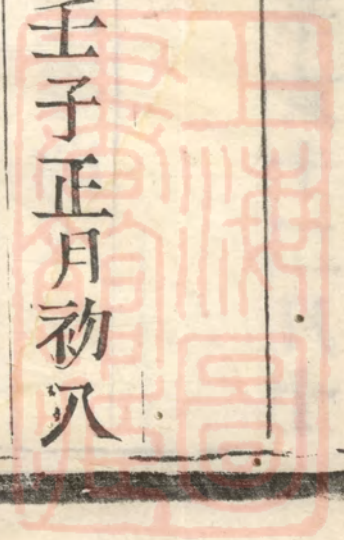 壬子正月初八
上海圖
書館藏